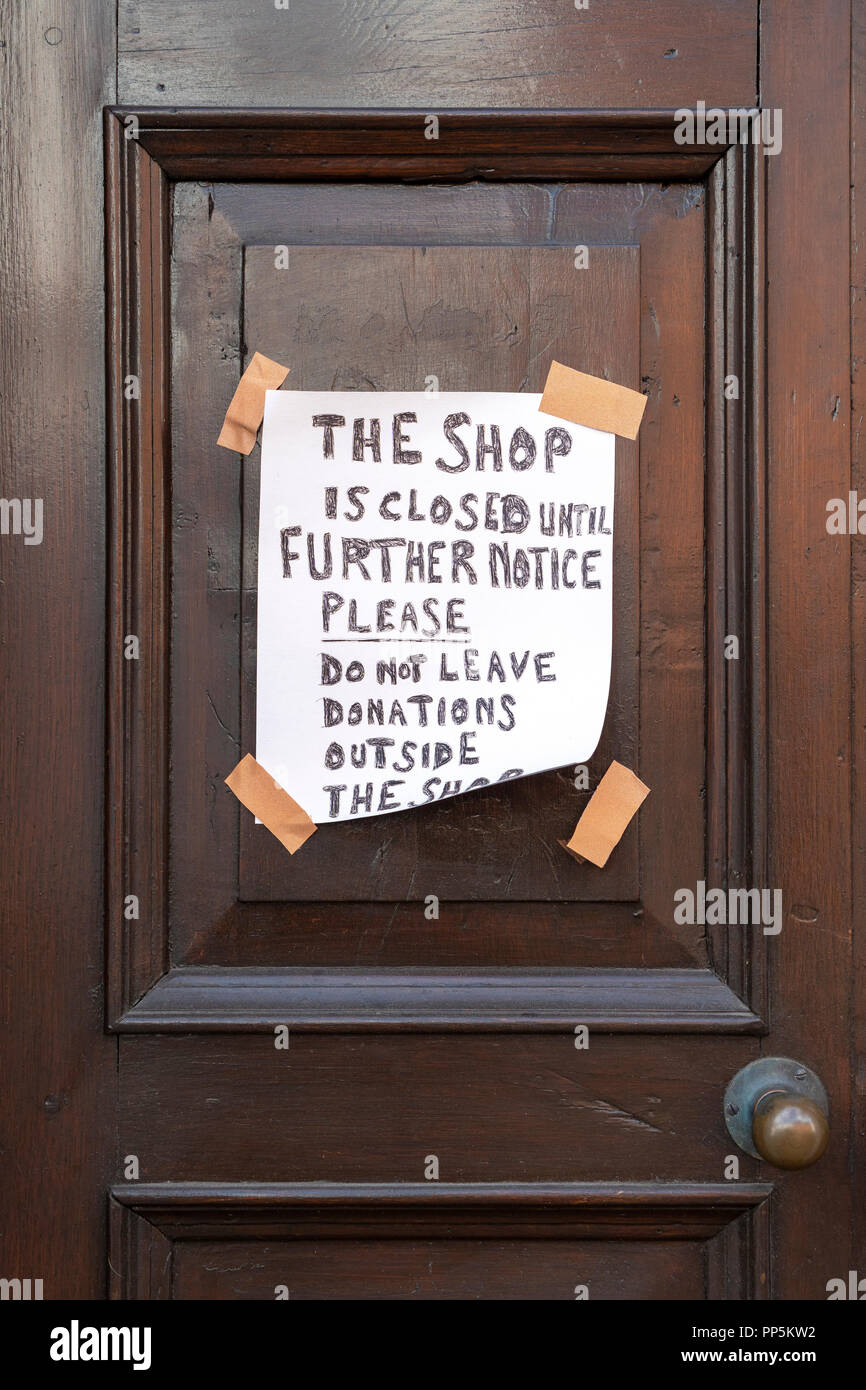 THE SHOP
IS CLOSED UNTIL
FURTHER NOTICE
PLEASE
DO NOT LEAVE
DONATIONS
OUTSIDE
THE SHOP
a
alamy
Image ID: PP5KW2
www.alamy.com